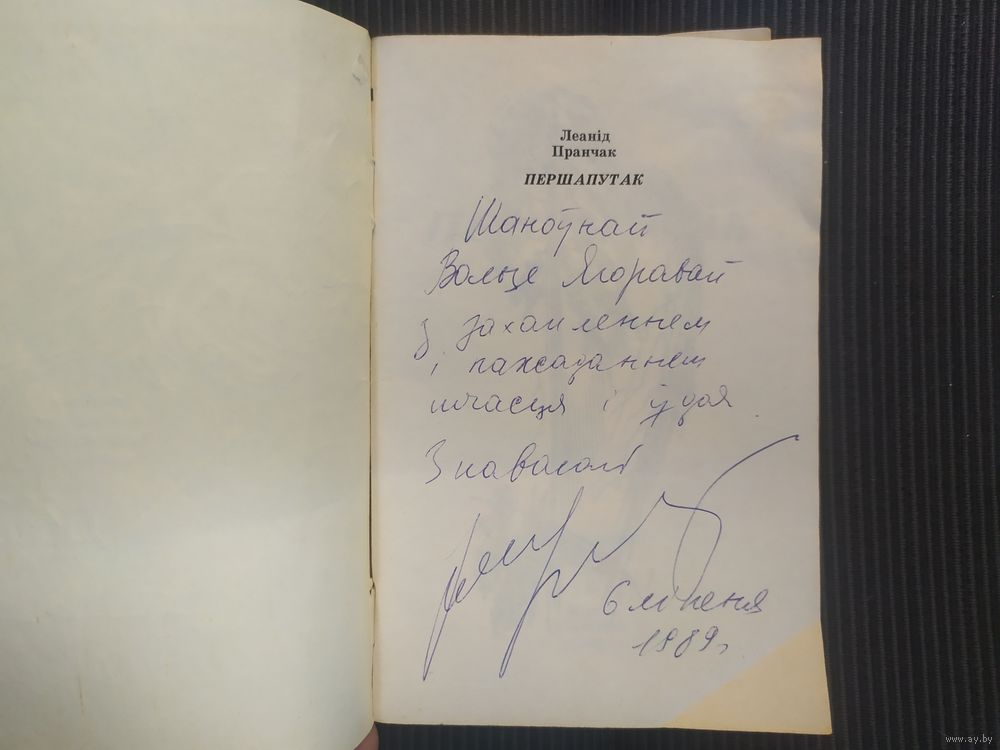 Леанід
Пранчак
ПЕРШАПУТАК
Шаноўнай
Вольце Ягоравай
З захапленнем
і пажаданнем
шчасця і ўдач
З павагай
6 ліпеня
1989 г.
www.ay.by